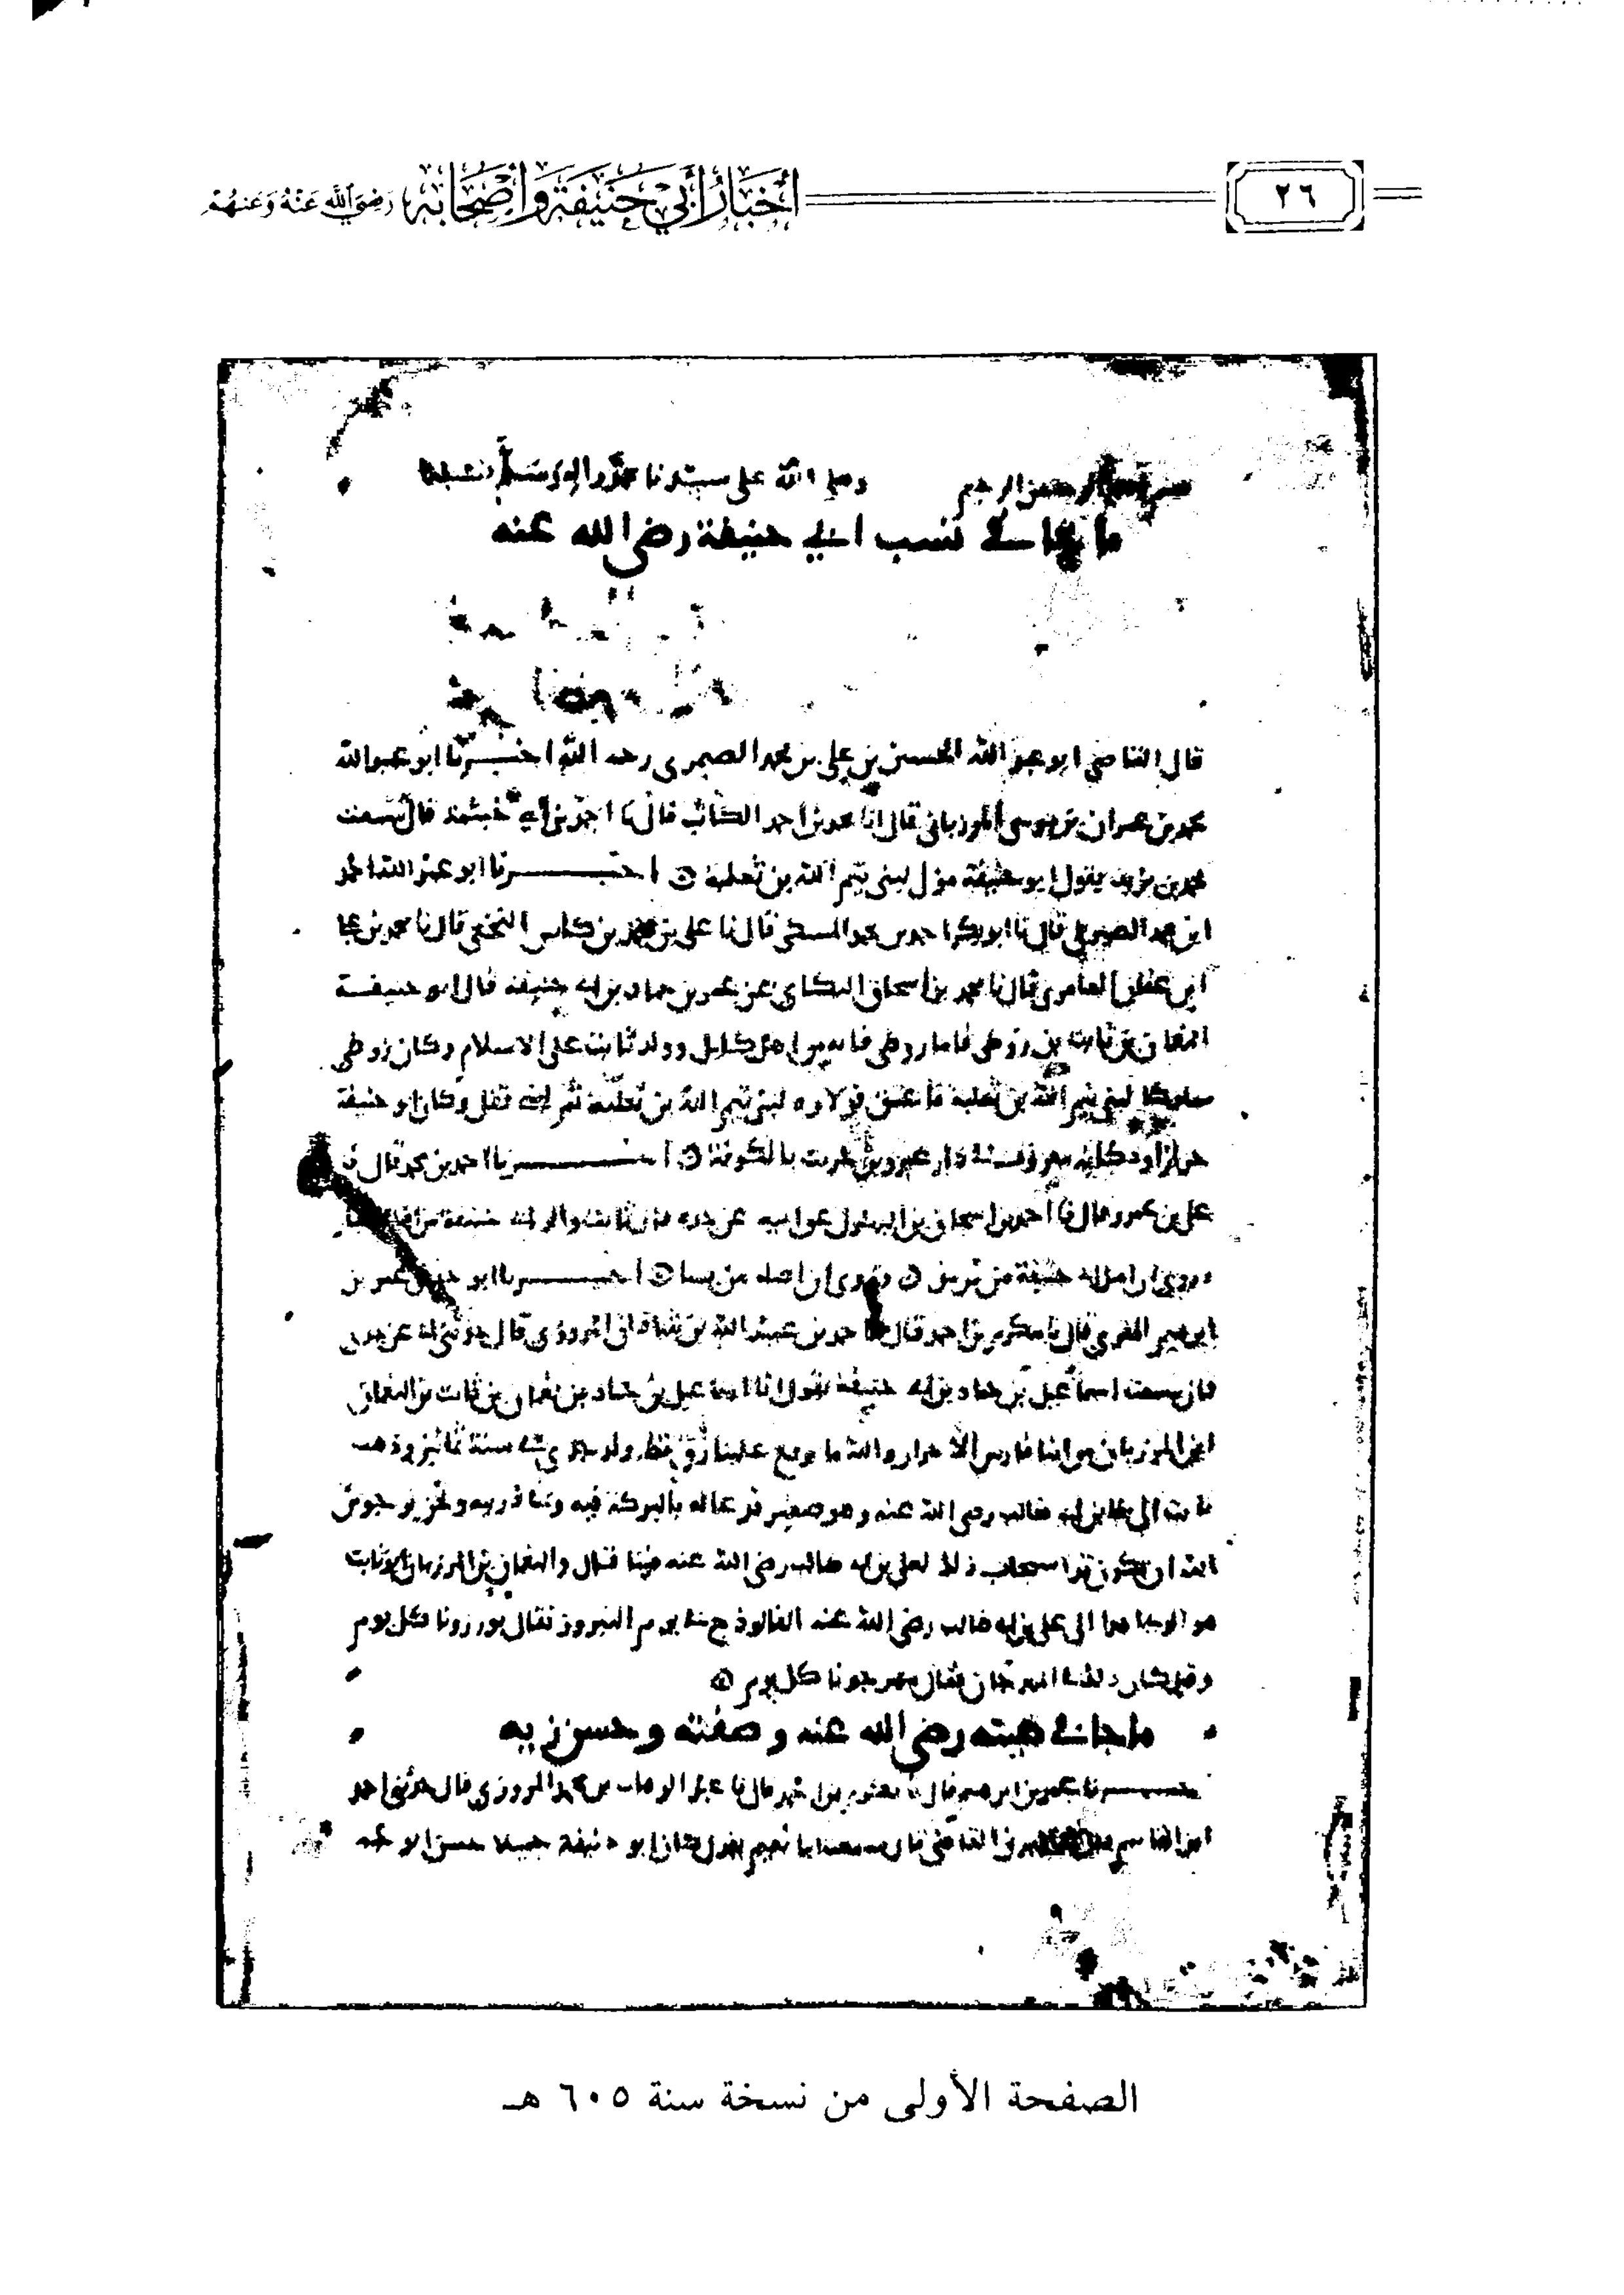 ٢٦
أخبار أبي حنيفة وأصحابه رضي الله عنه وعنهم
الرحمن الرحيم وصلى الله على سيدنا محمد واله وسلم تسليما
ما جا في نسب ابي حنيفة رضي الله عنه
قال القاضي ابو عبد الله الحسين بن علي بن محمد الصيمري رحمه الله اخبرنا ابو عبد الله
محمد بن عمران بن موسى المرزباني قال انا محمد بن احمد الكاتب قال نا احمد بن أبي خيثمة قال سمعت
محمد بن يزيد يقول ابو حنيفة مولى لبني تيم الله بن ثعلبة اخبرنا ابو عبد الله احمد
ابن محمد الصيرفي قال نا ابو بكر احمد بن محمد المسكي قال نا علي بن محمد بن كاس النخعي قال نا محمد بن
ابن عفان العامري قال نا محمد بن اسحاق البكاي عن عمر بن حماد بن ابي حنيفة قال ابو حنيفة
النعمان بن ثابت بن زوطى فاما زوطى فانه من اهل كابل وولد ثابت على الاسلام وكان زوطى
مملوكا لبني تيم الله بن ثعلبة فاعتق فولاوه لبني تيم الله بن ثعلبة ثم لبني قفل وكان ابو حنيفة
خزازا ودكانه معروف في دار عمرو بن حريث بالكوفة اخبرنا احمد بن محمد قال نا
علي بن عمرو قال نا احمد بن اسحاق بن البهلول عن ابيه عن جده قال ثابت والد ابي حنيفة من
وروي ان اصل ابي حنيفة من ترمذ وروى ان اصله من نسا اخبرنا ابو حفص عمر بن
ابرهيم المقري قال نا مكرم بن احمد قال نا احمد بن عبيد الله بن شاذان المروزي قال حدثني ابي عن جدي
قال سمعت اسماعيل بن حماد بن ابي حنيفة يقول انا اسماعيل بن حماد بن نعمان بن ثابت بن النعمان
ابن المرزبان من ابنا فارس الاحرار والله ما وقع علينا رق قط ولد جدي في سنة ثمانين وذهب
ثابت الى علي بن ابي طالب رضي الله عنه وهو صغير فدعا له بالبركة فيه وفي ذريته ونحن نرجو من
الله ان يكون قد استجاب ذلك لعلي بن ابي طالب رضي الله عنه فينا قال والنعمان بن المرزبان ابو ثابت
هو الذي اهدا الى علي بن ابي طالب رضي الله عنه الفالوذج في يوم النيروز فقال نورزونا كل يوم
وقيل كان ذلك في المهرجان فقال مهرجونا كل يوم
ما جا في هيبته رضي الله عنه وصفته وحسن زيه
اخبرنا عمر بن ابرهيم قال نا مكرم بن احمد قال نا عبد الوهاب بن محمد المروزي قال حدثني احمد
ابن القاسم القاضي قال سمعت ابا نعيم يقول كان ابو حنيفة جميلا حسن الوجه
الصفحة الأولى من نسخة سنة ٦٠٥ هـ